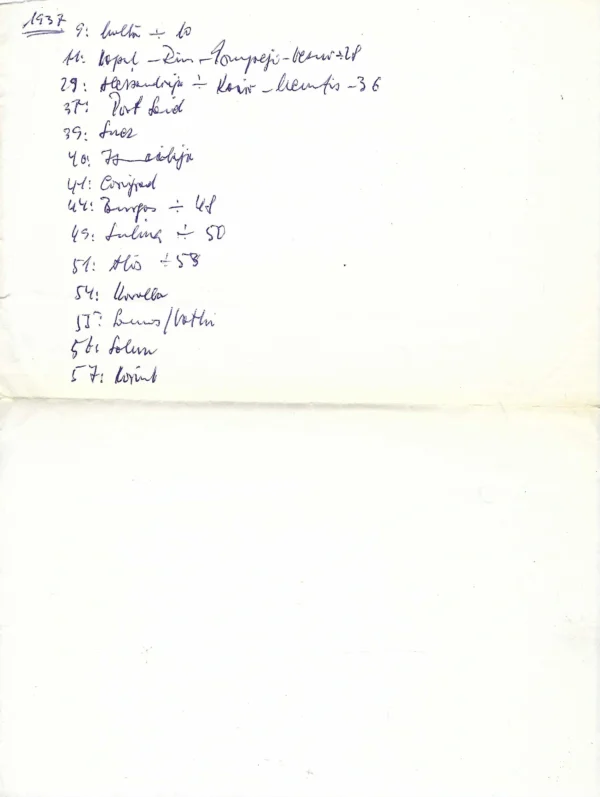 1937 9: Malta ÷ 10
11: Napul - Rim - Pompeji - Vezuv ÷ 28
29: Alessandrija ÷ Kair - Memfis - 36
37: Port Said
39: Suez
40: Ismailija
41: Carigrad
44: Burgas ÷ 48
49: Sulina ÷ 50
51: ÷ 53
54: Kavalla
55: Samos/Vathi
56: Solun
57: Korint